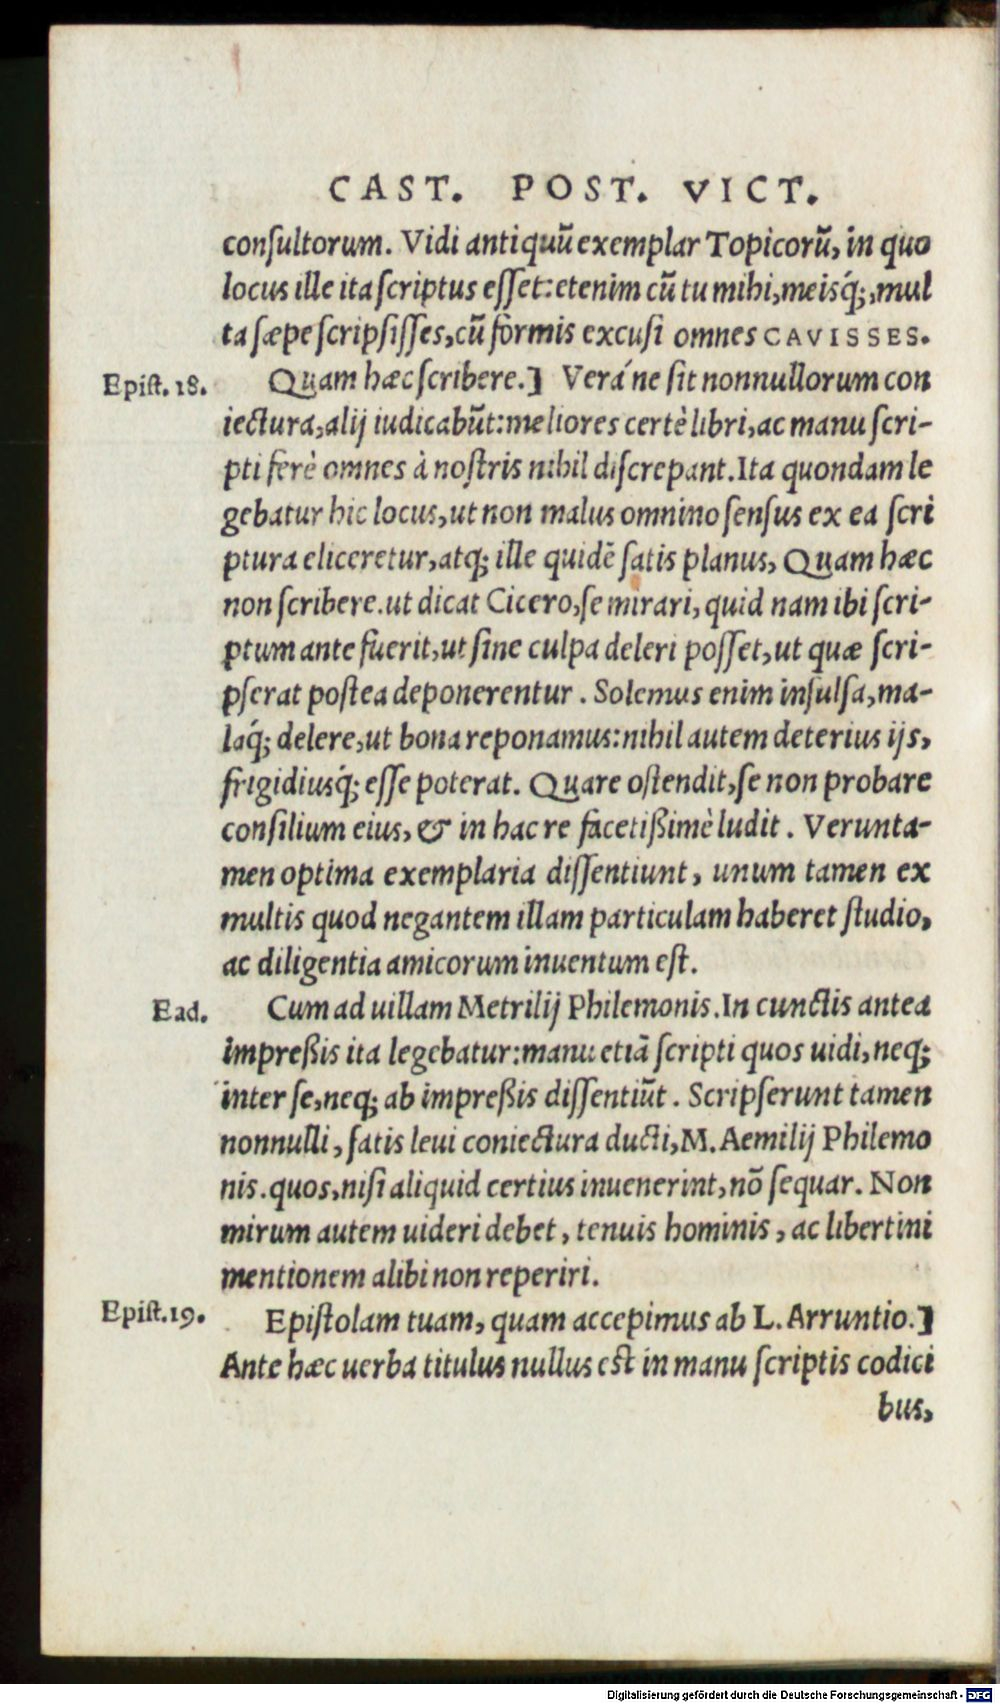 CAST. POST. VICT.
conſultorum. Vidi antiquũ exemplar Topicorũ, in quo
locus ille ita ſcriptus eſſet: etenim cũ tu mihi, meisq́;, mul
ta ſæpe ſcripſiſſes, cũ formis excuſi omnes CAVISSES.
Epiſt. 18. Quam hæc ſcribere.] Verá ne ſit nonnullorum con
iectura, alij iudicabũt: meliores certè libri, ac manu ſcri-
pti ferè omnes à noſtris nihil diſcrepant. Ita quondam le
gebatur hic locus, ut non malus omnino ſenſus ex ea ſcri
ptura eliceretur, atq; ille quidẽ ſatis planus, Quam hæc
non ſcribere. ut dicat Cicero, ſe mirari, quid nam ibi ſcri-
ptum ante fuerit, ut ſine culpa deleri poſſet, ut quæ ſcri-
pſerat poſtea deponerentur. Solemus enim inſulſa, ma-
laq́; delere, ut bona reponamus: nihil autem deterius ijs,
frigidiusq́; eſſe poterat. Quare oſtendit, ſe non probare
conſilium eius, & in hac re facetißimè ludit. Verunta-
men optima exemplaria diſſentiunt, unum tamen ex
multis quod negantem illam particulam haberet ſtudio,
ac diligentia amicorum inuentum eſt.
Ead. Cum ad uillam Metrilij Philemonis. In cunctis antea
impreßis ita legebatur: manu etiã ſcripti quos uidi, neq;
inter ſe, neq; ab impreßis diſſentiũt. Scripſerunt tamen
nonnulli, ſatis leui coniectura ducti, M. Aemilij Philemo
nis. quos, niſi aliquid certius inuenerint, nõ ſequar. Non
mirum autem uideri debet, tenuis hominis, ac libertini
mentionem alibi non reperiri.
Epiſt. 19. Epiſtolam tuam, quam accepimus ab L. Arruntio.]
Ante hæc uerba titulus nullus eſt in manu ſcriptis codici
bus,
Digitalisierung gefördert durch die Deutsche Forschungsgemeinschaft - DFG